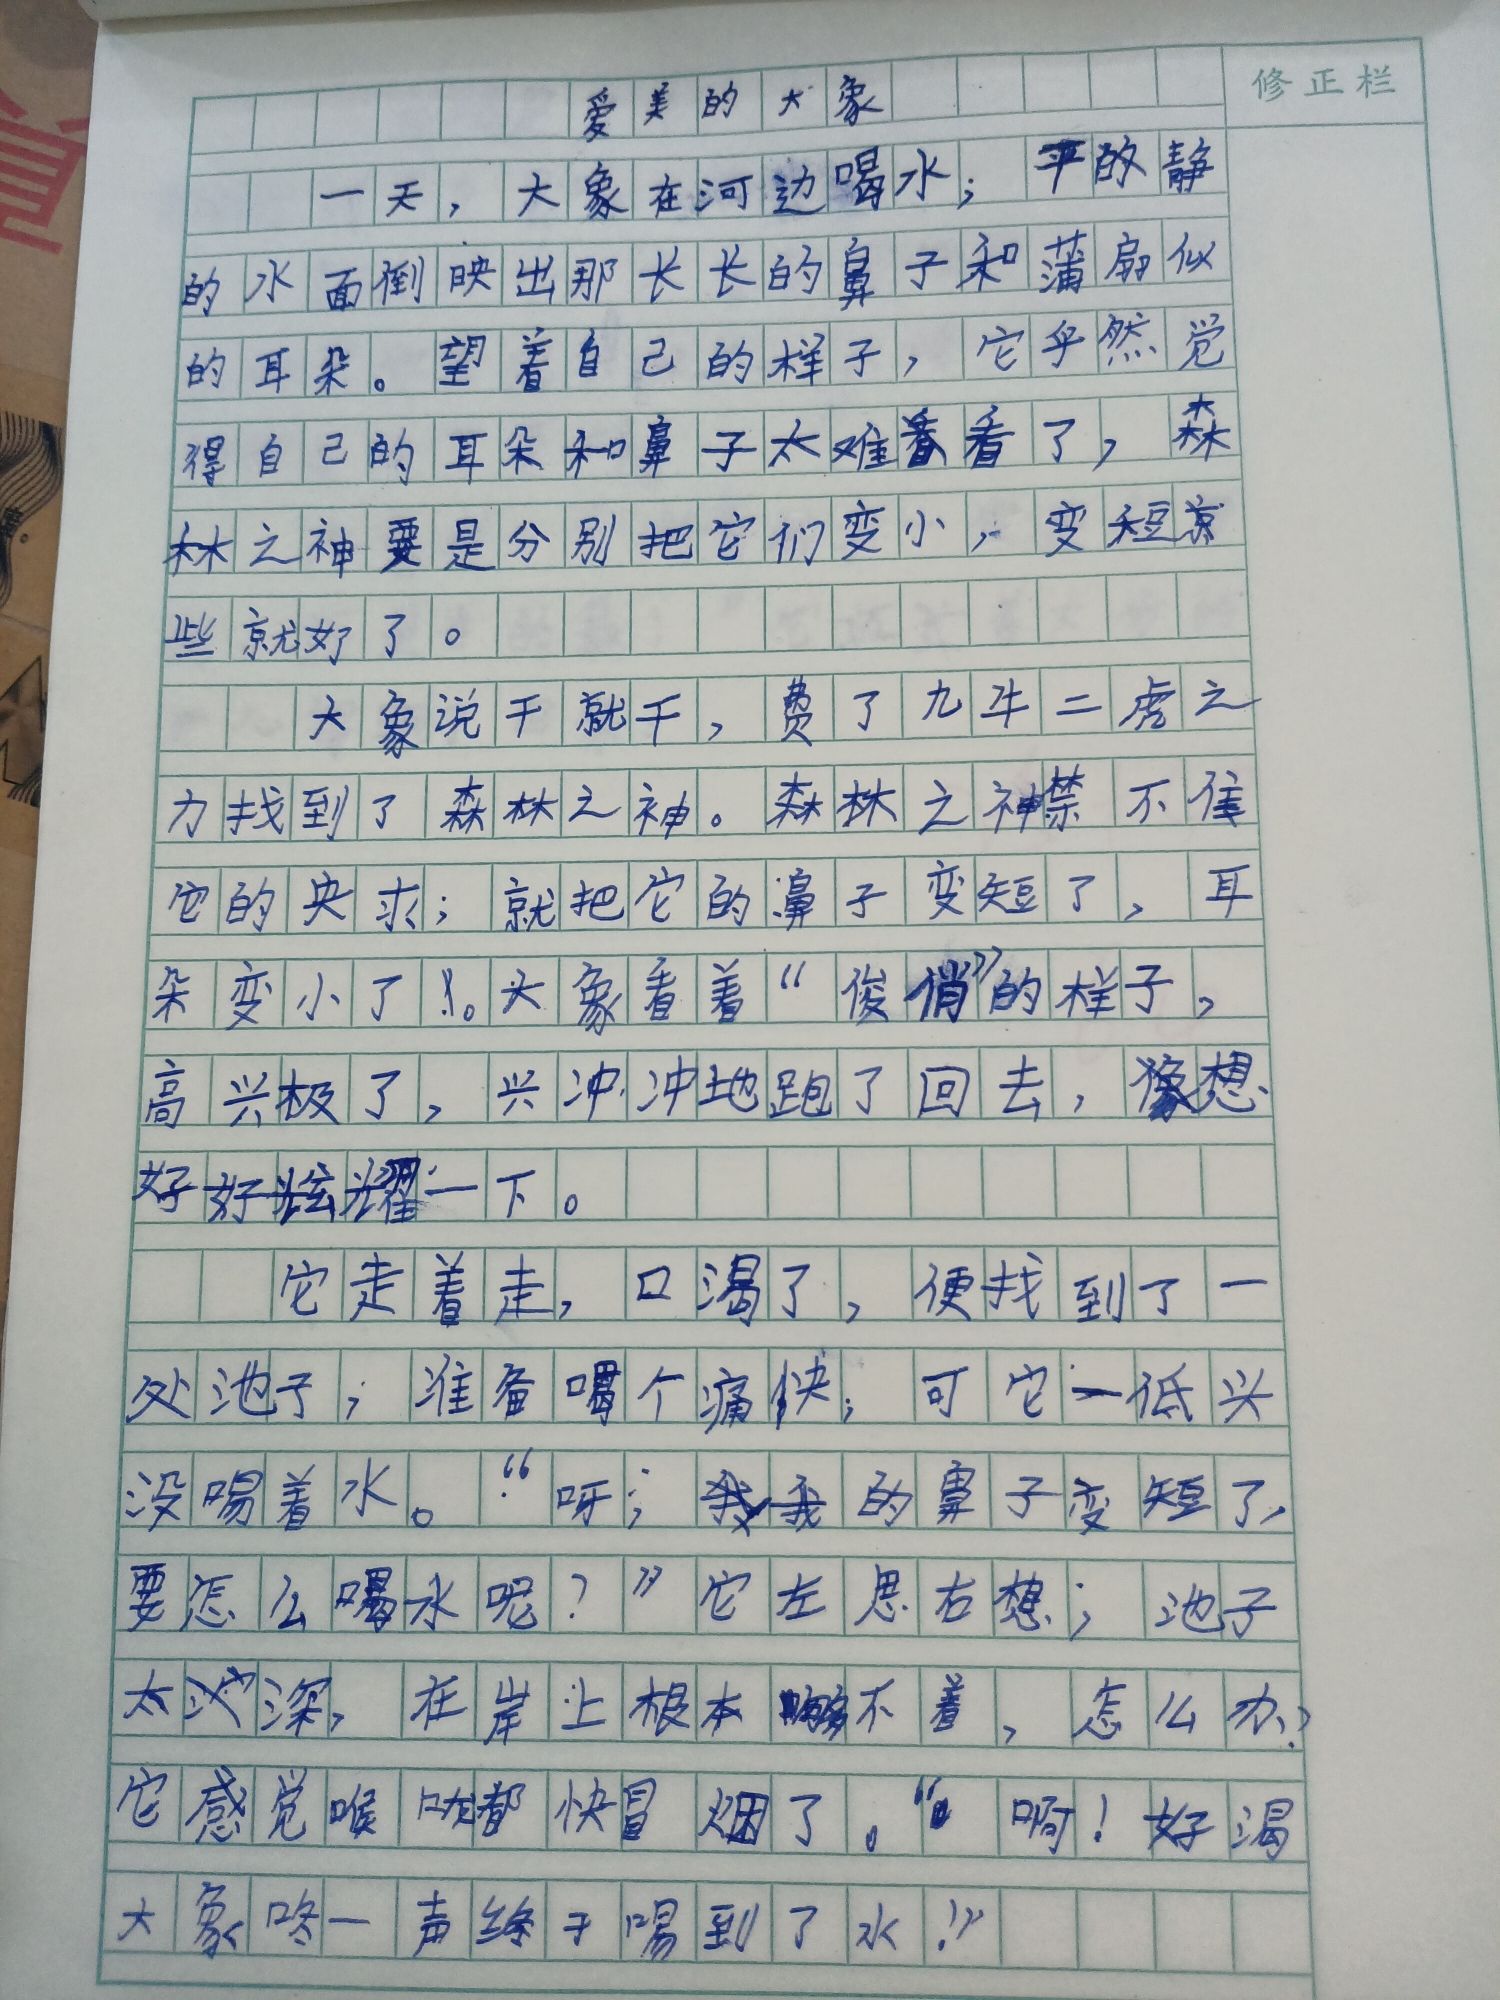 修正栏
爱美的大象
一天，大象在河边喝水；平的静
的水面倒映出那长长的鼻子和蒲扇似
的耳朵。望着自己的样子，它乎然觉
得自己的耳朵和鼻子太难看看了，森
林之神要是分别把它们变小，变短
些就好了。
大象说干就干，费了九牛二虎之
力找到了森林之神。森林之神禁不住
它的央求；就把它的鼻子变短了，耳
朵变小了。大象看着“俊俏”的样子，
高兴极了，兴冲冲地跑了回去，想
好好炫耀一下。
它走着走，口渴了，便找到了一
处池子；准备喝个痛快；可它一低头
没喝着水。“呀；我的鼻子变短了，
要怎么喝水呢？”它左思右想；池子
太深，在岸上根本够不着，怎么办？
它感觉喉咙都快冒烟了。“啊！好渴
大象咚一声终于喝到了水！”